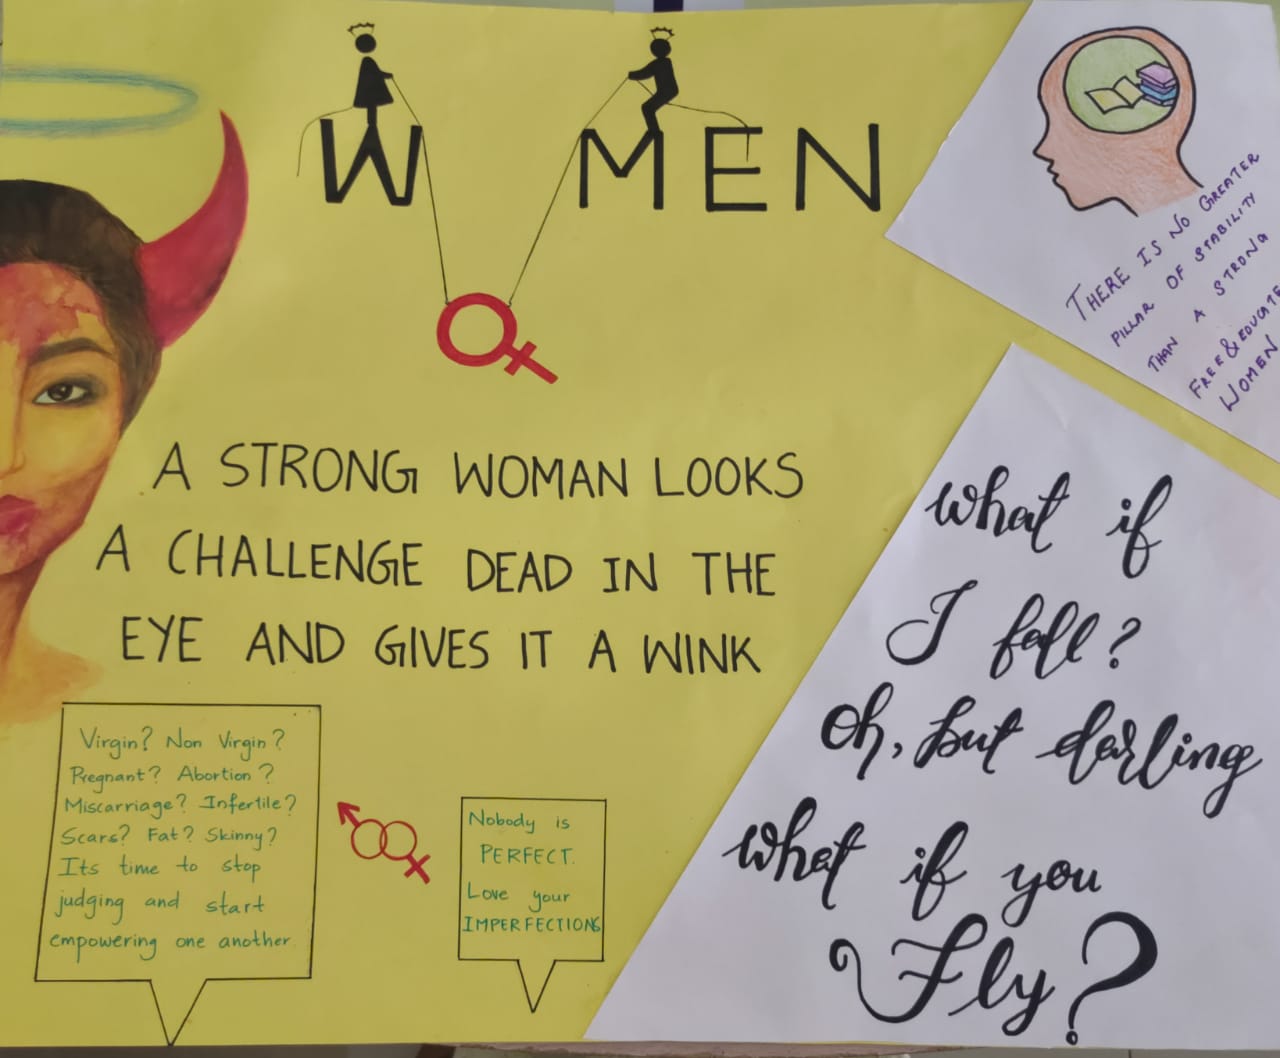 W MEN
THERE IS NO GREATER
PILLAR OF STABILITY
THAN A STRONG
FREE & EDUCATE
WOMEN
A STRONG WOMAN LOOKS
A CHALLENGE DEAD IN THE
EYE AND GIVES IT A WINK
what if
I fall?
oh, but darling
what if you
Fly?
Virgin? Non Virgin?
Pregnant? Abortion?
Miscarriage? Infertile?
Scars? Fat? Skinny?
Its time to stop
judging and start
empowering one another
Nobody is
PERFECT.
Love your
IMPERFECTIONS